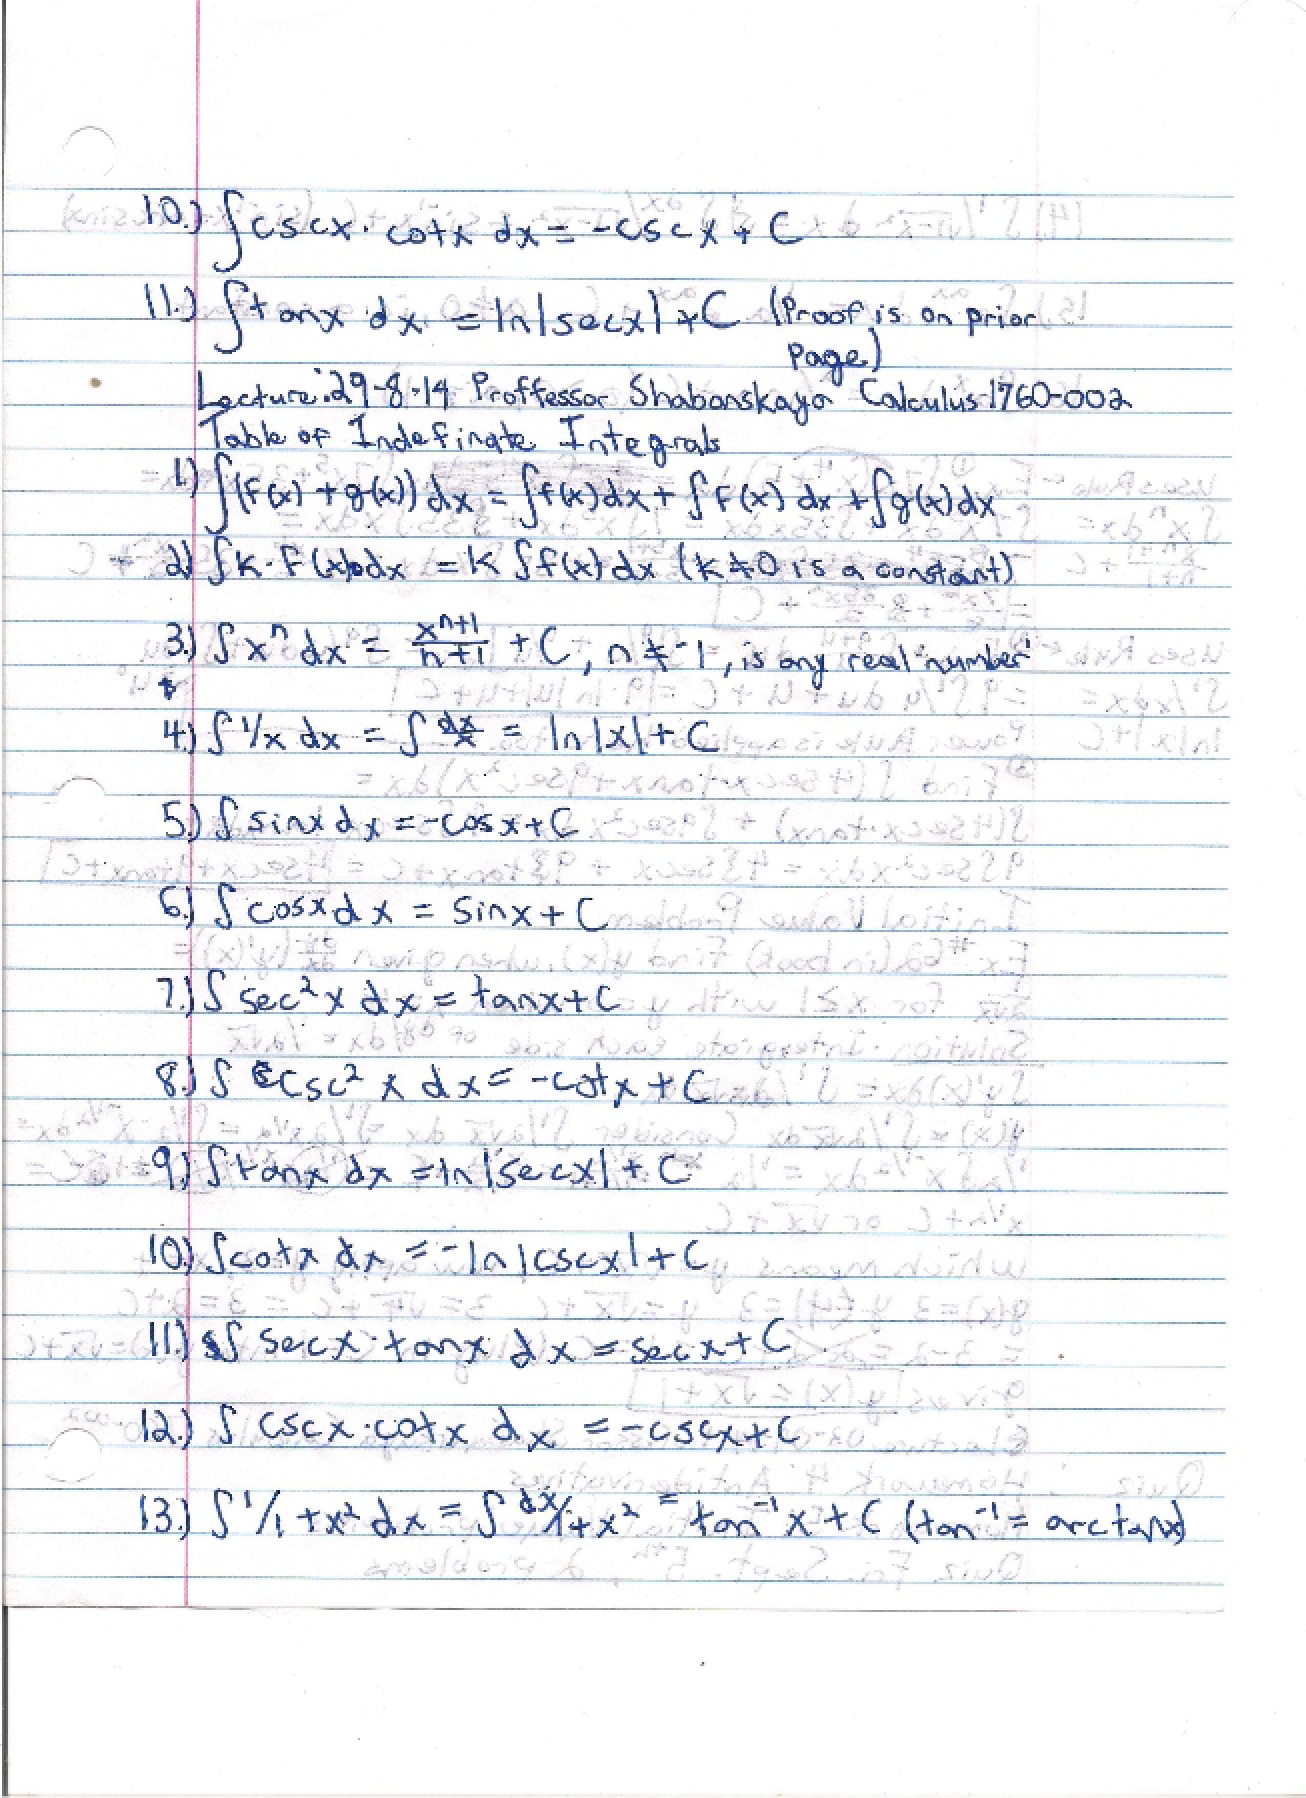 10.) ∫cscx · cotx dx = -cscx + C
11.) ∫tanx dx = ln|secx| + C (Proof is on prior
page)
Lecture: 29-8-14 Proffessor Shabanskaya Calculus-1760-002
Table of Indefinate Integrals
1.) ∫(f(x) + g(x)) dx = ∫f(x)dx + ∫f(x) dx + ∫g(x)dx
2.) ∫k·f(x)dx = k ∫f(x) dx (k≠0 is a constant)
3.) ∫x^n dx = x^(n+1)/(n+1) + C, n ≠ -1, is any real number
4.) ∫1/x dx = ∫dx/x = ln|x| + C
5.) ∫sinx dx = -cosx + C
6.) ∫cosx dx = sinx + C
7.) ∫sec²x dx = tanx + C
8.) ∫csc²x dx = -cotx + C
9.) ∫tanx dx = ln|secx| + C
10.) ∫cotx dx = -ln|cscx| + C
11.) ∫secx·tanx dx = secx + C
12.) ∫cscx·cotx dx = -cscx + C
13.) ∫1/1+x² dx = ∫dx/1+x² = tan⁻¹x + C (tan⁻¹ = arctanx)